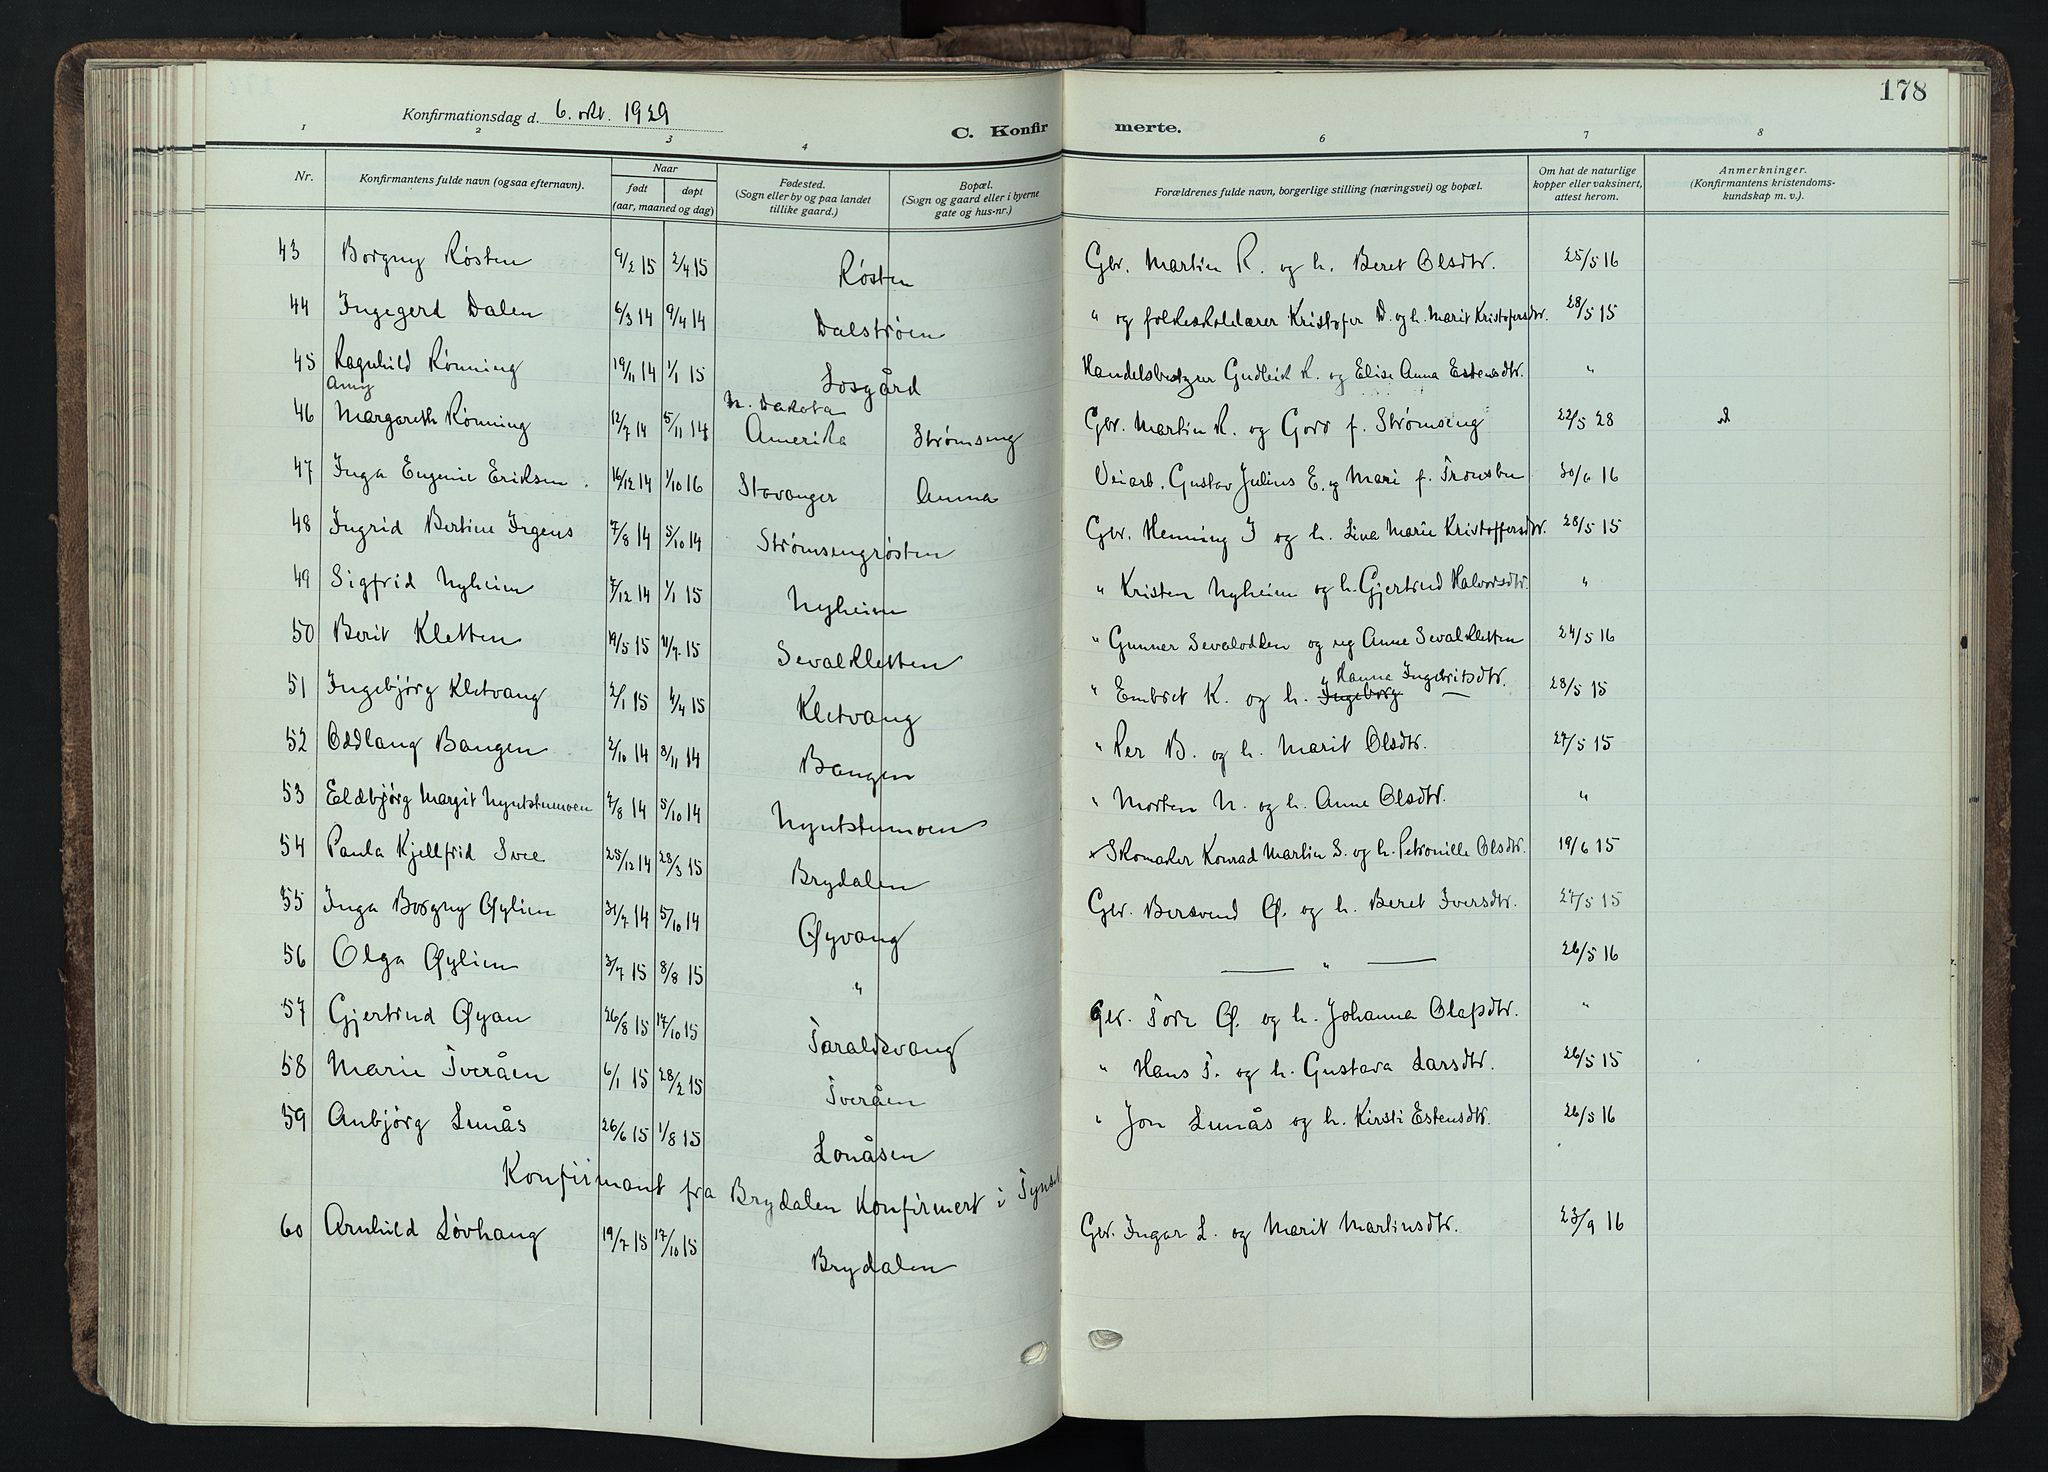 178
Konfirmationsdag d. 6. okt. 1929
C. Konfir merte.
1 2 3 4 6 7 8
Nr. Konfirmantens fulde navn (ogsaa efternavn). Naar født døpt (aar, maaned og dag) Fødested. (Sogn eller by og paa landet tillike gaard.) Bopæl. (Sogn og gaard eller i byerne gate og hus-nr.) Forældrenes fulde navn, borgerlige stilling (næringsvei) og bopæl. Om hat de naturlige kopper eller vaksinert, attest herom. Anmerkninger. (Konfirmantens kristendoms-kundskap m. v.).
43 Borgny Røsten 9/2 15 2/4 15 Røsten Gbr. Martin R. og h. Beret Olsdtr. 25/5 16
44 Ingegerd Dalen 6/3 14 9/4 14 Dalstrøen " og folkeskolelærer Kristofer D. og h. Marit Kristofersdtr. 28/5 15
45 Ragnhild Rønning 19/11 14 1/1 15 Losgård Handelsbestyrer Gudleik R. og Elise Anna Estensdtr. "
Amy N. Dakota
46 Margareth Rønning 12/7 14 5/11 14 Amerika Strømseng Gbr. Martin R. og Goro f. Strømseng 22/5 28
47 Inga Eugenie Eriksen. 16/12 14 1/10 16 Stavanger Auma Veiarb. Gustav Julius E. og Mari f. Tronsbu 30/6 16
48 Ingrid Bertine Irgens 7/8 14 5/10 14 Strømsengrøsten Gbr. Henning I og h. Lina Marie Kristoffersdtr. 28/5 15
49 Sigfrid Nyheim 7/12 14 1/1 15 Nyheim " Kristen Nyheim og h. Gjertrud Halvorsdtr. "
50 Berit Kletten 19/5 15 11/7 15 Sevalkletten " Gunnar Sevalodden og ug Anne Sevalkletten 24/5 16
Hanna Ingebritsdtr.
51 Ingebjørg Kletvang 2/1 15 4/4 15 Kletvang " Embret K. og h. Ingeborg — 28/5 15
52 Oddlaug Bangen 2/10 14 8/11 14 Bangen " Per B. og h. Marit Olsdtr. 27/5 15
53 Eldbjørg Margit Nyutstumoen 7/8 14 5/10 14 Nyutstumoen " Morten N. og h. Anne Olsdtr. "
54 Paula Kjellfrid Svee 25/12 14 28/3 15 Brydalen Skomaker Konrad Martin S. og h. Petronille Olsdtr. 19/6 15
55 Inga Borgny Øylien 31/7 14 5/10 14 Øyvang Gbr. Bersvend Ø. og h. Beret Iversdtr. 27/5 15
56 Olga Øylien 3/7 15 8/8 15 " — " — 26/5 16
57 Gjertrud Øyan 26/8 15 17/10 15 Taraldsvang Gbr. Tore Ø. og h. Johanna Olafsdtr. "
58 Marie Tveråen 6/1 15 28/2 15 Tveråen " Hans T. og h. Gustava Larsdtr. 26/5 15
59 Anbjørg Lunås 26/6 15 1/8 15 Lonåsen " Jon Lunås og h. Kirsti Estensdtr. 26/5 16
Konfirmant fra Brydalen konfirmert i Tynset
60 Arnhild Løvhaug 19/7 15 17/10 15 Brydalen Gbr. Ingar L. og Marit Martinsdtr. 23/9 16